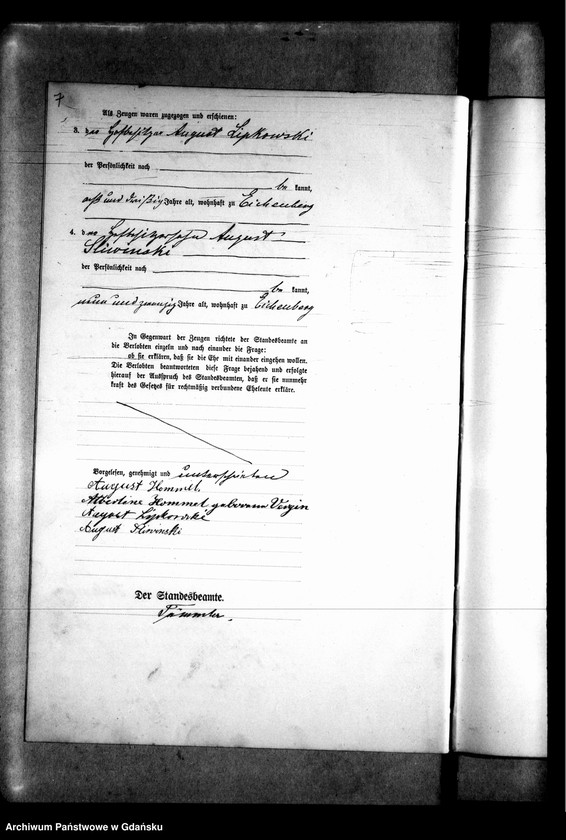 7
Als Zeugen waren zugezogen und erschienen:
3. der Hofbesitzer August Lipkowski
der Persönlichkeit nach
be kannt,
acht und dreißig Jahre alt, wohnhaft zu Eichenberg
4. der Hofbesitzersohn August
Sliwinski
der Persönlichkeit nach
be kannt,
neun und zwanzig Jahre alt, wohnhaft zu Eichenberg
In Gegenwart der Zeugen richtete der Standesbeamte an
die Verlobten einzeln und nach einander die Frage:
ob sie erklären, daß sie die Ehe mit einander eingehen wollen.
Die Verlobten beantworteten diese Frage bejahend und erfolgte
hierauf der Ausspruch des Standesbeamten, daß er sie nunmehr
kraft des Gesetzes für rechtmäßig verbundene Eheleute erkläre.
Vorgelesen, genehmigt und unterschrieben
August Hommel.
Albertine Hommel geborene Vergin
August Lipkowski
August Sliwinski
Der Standesbeamte.
Archiwum Państwowe w Gdańsku